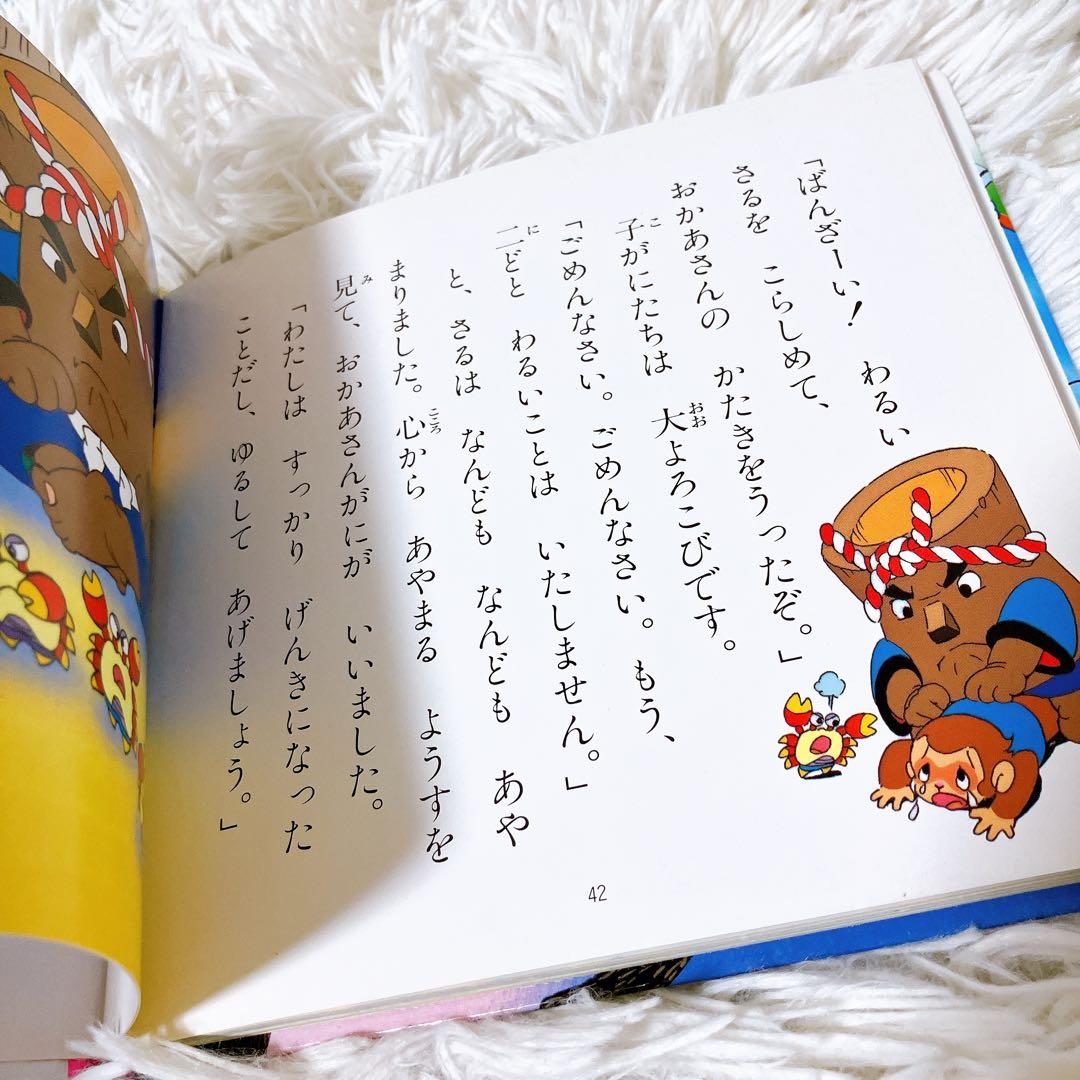 「ばんざーい！　わるい
さるを　こらしめて、
おかあさんの　かたきをうったぞ。」
子がにたちは　大よろこびです。
「ごめんなさい。ごめんなさい。もう、
二どと　わるいことは　いたしません。」
と、さるは　なんども　なんども　あや
まりました。心から　あやまる　ようすを
見て、おかあさんがにが　いいました。
「わたしは　すっかり　げんきになった
ことだし、ゆるして　あげましょう。」
42